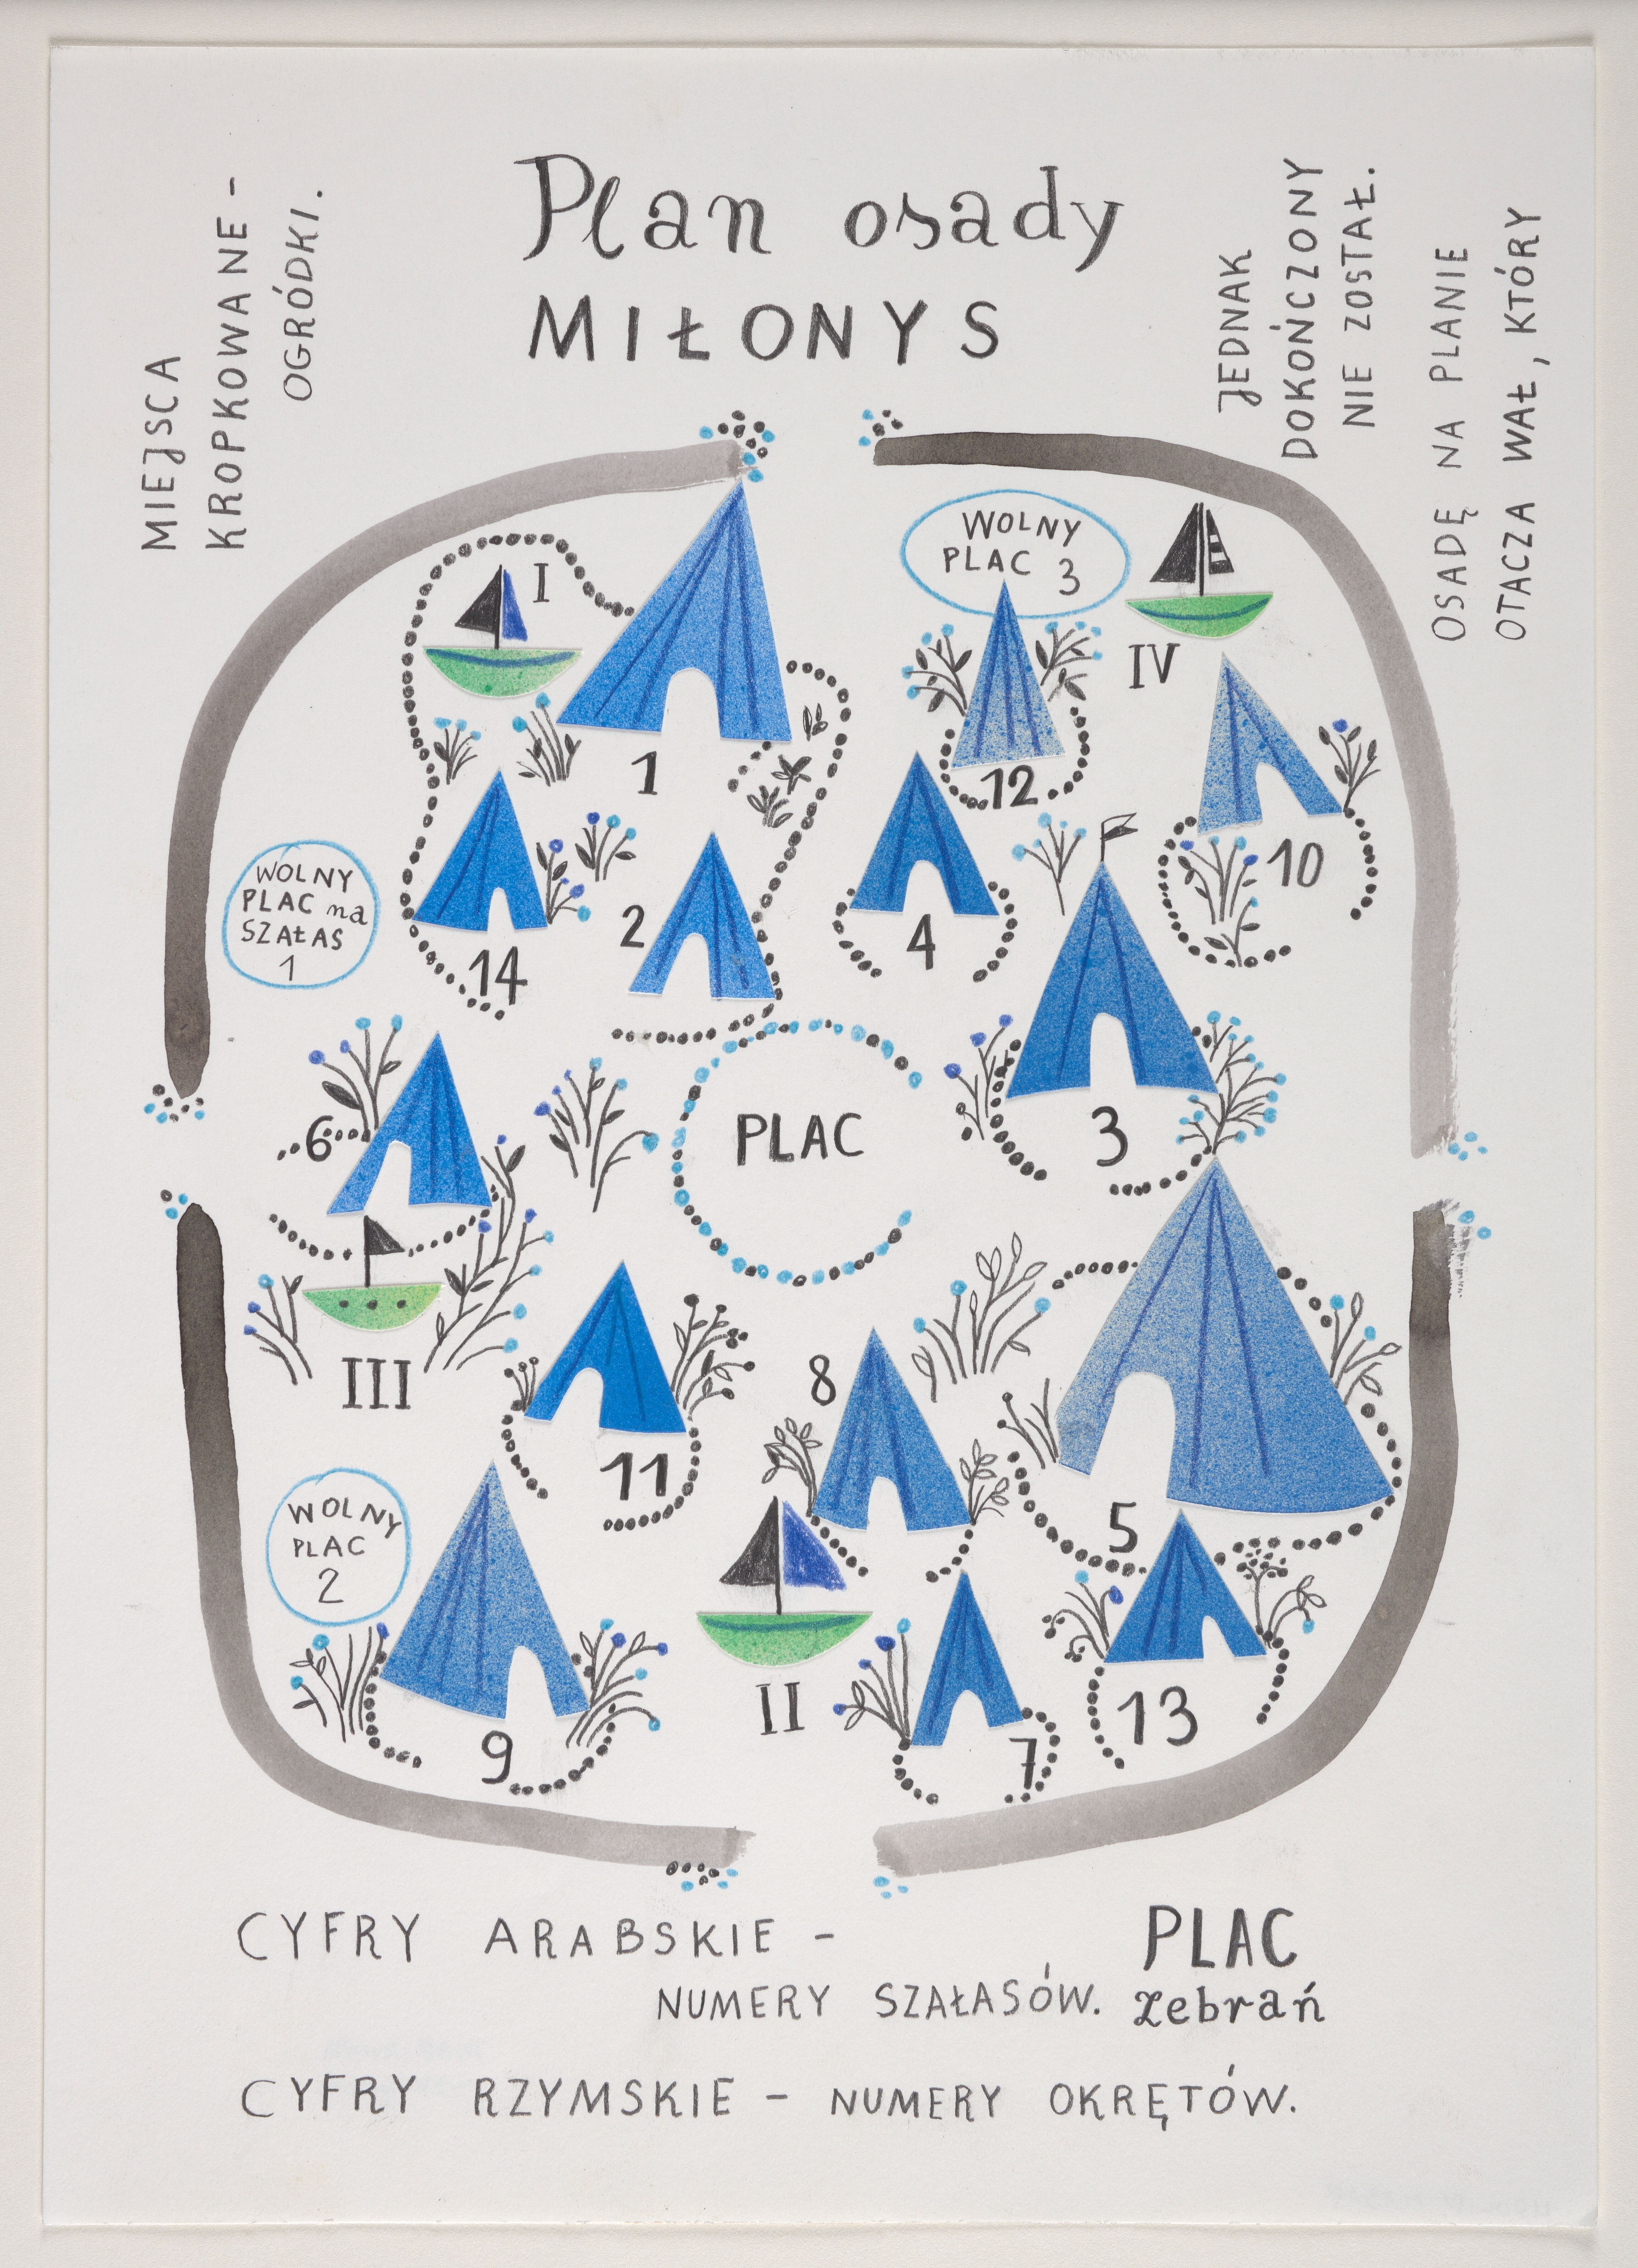 Plan osady
MIŁONYS
MIEJSCA
KROPKOWANE -
OGRÓDKI.
JEDNAK
DOKOŃCZONY
NIE ZOSTAŁ.
OSADĘ NA PLANIE
OTACZA WAŁ, KTÓRY
WOLNY
PLAC 3
I
IV
1
12
10
WOLNY
PLAC na
SZAŁAS
1
14
2
4
6
PLAC
3
III
11
8
5
WOLNY
PLAC
2
9
II
7
13
CYFRY ARABSKIE -
NUMERY SZAŁASÓW.
PLAC
zebrań
CYFRY RZYMSKIE - NUMERY OKRĘTÓW.